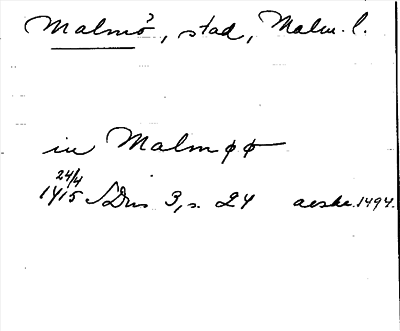 Malmö, stad, Malm. l.
in Malmøø
24/4
1415 SDns 3, s. 24 aeske 1494.